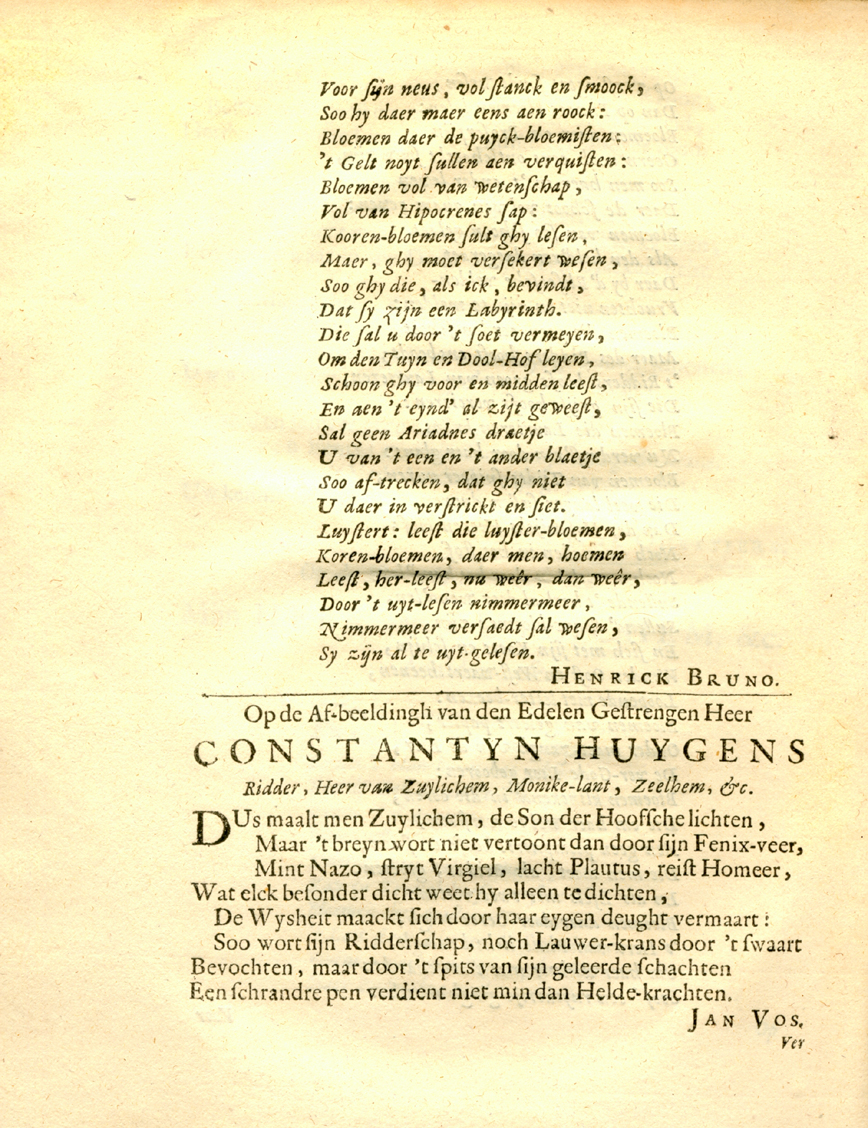 Voor ſijn neus, vol ſtanck en ſmoock,
Soo hy daer maer eens aen roock:
Bloemen daer de puyck-bloemiſten:
't Gelt noyt ſullen aen verquiſten:
Bloemen vol van wetenſchap,
Vol van Hipocrenes ſap:
Kooren-bloemen ſult ghy leſen,
Maer, ghy moet verſekert weſen,
Soo ghy die, als ick, bevindt,
Dat ſy zijn een Labyrinth.
Die ſal u door 't ſoet vermeyen,
Om den Tuyn en Dool-Hof leyen,
Schoon ghy voor en midden leeſt,
En aen 't eynd' al zijt geweeſt,
Sal geen Ariadnes draetje
U van 't een en 't ander blaetje
Soo af-trecken, dat ghy niet
U daer in verſtrickt en ſiet.
Luyſtert: leeſt die luyſter-bloemen,
Koren-bloemen, daer men, hoemen
Leeſt, her-leeſt, nu weêr, dan weêr,
Door 't uyt-leſen nimmermeer,
Nimmermeer verſaedt ſal weſen,
Sy zijn al te uyt-geleſen.
HENRICK BRUNO.
Op de Af-beeldingh van den Edelen Geſtrengen Heer
CONSTANTYN HUYGENS
Ridder, Heer van Zuylichem, Monike-lant, Zeelhem, &c.
DUs maalt men Zuylichem, de Son der Hooffſche lichten,
Maar 't breyn wort niet vertoont dan door ſijn Fenix-veer,
Mint Nazo, ſtryt Virgiel, lacht Plautus, reiſt Homeer,
Wat elck beſonder dicht weet hy alleen te dichten,
De Wysheit maackt ſich door haar eygen deught vermaart:
Soo wort ſijn Ridderſchap, noch Lauwer-krans door 't ſwaart
Bevochten, maar door 't ſpits van ſijn geleerde ſchachten
Een ſchrandre pen verdient niet min dan Helde-krachten.
JAN VOS.
Ver